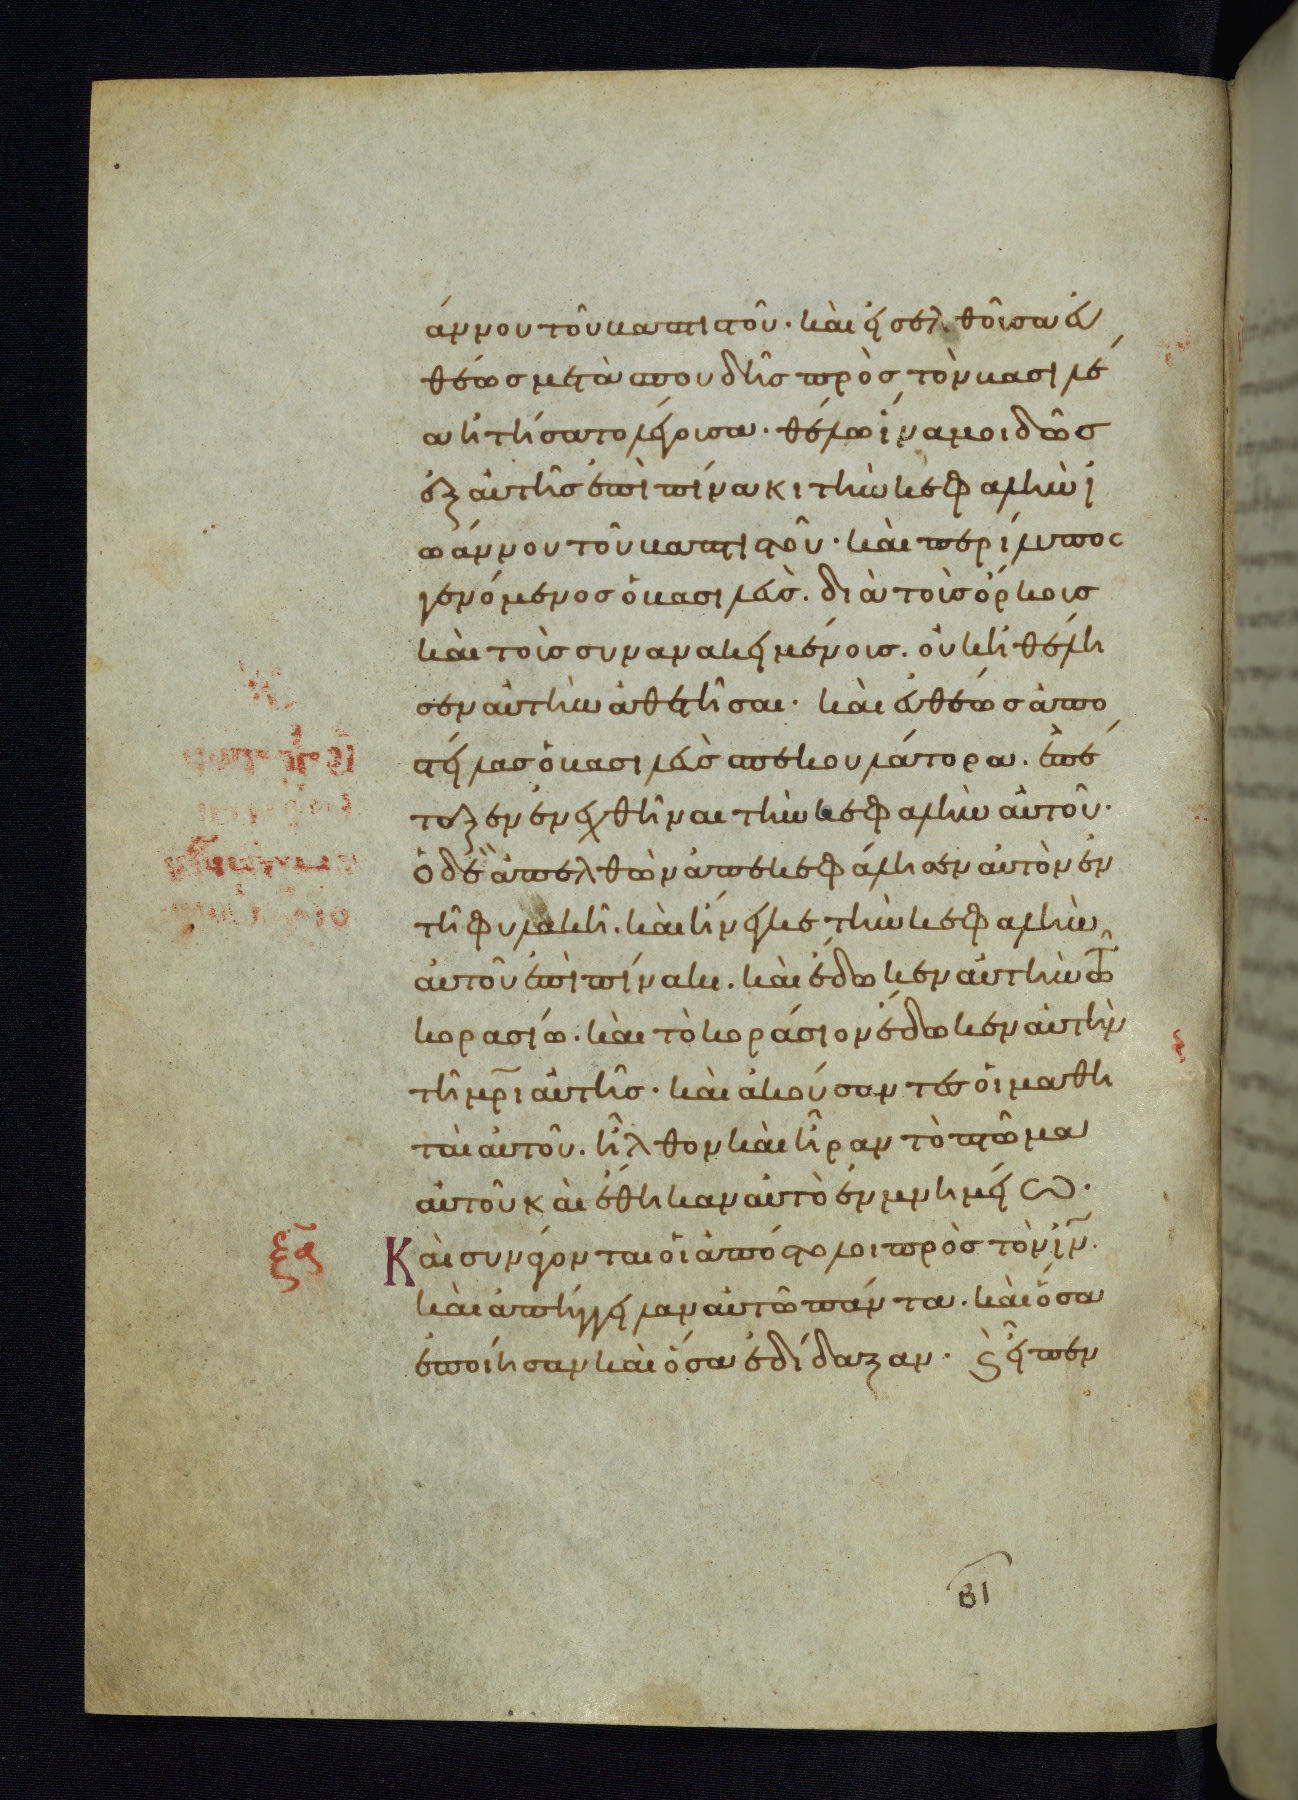 άννου τοῦ βαπτιστοῦ· καὶ εἰσελθοῦσα εὐ
θέως μετὰ σπουδῆς πρὸς τὸν βασιλέ
α ἠτήσατο λέγουσα· θέλω ἵνα μοι δῶς
ἐξ αὐτῆς ἐπὶ πίνακι τὴν κεφαλὴν ἰ
ωάννου τοῦ βαπτιστοῦ· καὶ περίλυπος
γενόμενος ὁ βασιλεὺς. διὰ τοὺς ὅρκους
καὶ τοὺς συνανακειμένους. οὐκ ἠθέλη
σεν αὐτὴν ἀθετῆσαι· καὶ εὐθέως ἀπο
στείλας ὁ βασιλεὺς σπεκουλάτορα. ἐπέ
ταξεν ἐνεχθῆναι τὴν κεφαλὴν αὐτοῦ·
ὁ δὲ ἀπελθὼν ἀπεκεφάλησεν αὐτὸν ἐν
τῆ φυλακῆ. καὶ ἤνεγκε τὴν κεφαλὴν
αὐτοῦ ἐπὶ πίνακι. καὶ ἔδωκεν αὐτὴν τῶ
κορασίω. καὶ τὸ κοράσιον ἔδωκεν αὐτὴν
τῆ μρ̅ι αὐτῆς· καὶ ἀκούσαντες οἱ μαθη
ταὶ αὐτοῦ. ἦλθον καὶ ἦραν τὸ πτῶμα
αὐτοῦ καὶ ἔθηκαν αὐτὸ ἐν μνημείω·
ξα Καὶ συνάγονται οἱ ἀπόστολοι πρὸς τὸν ι̅ν·
καὶ ἀπήγγειλαν αὐτῶ πάντα. καὶ ὅσα
ἐποίησαν καὶ ὅσα ἐδίδαξαν· ϗ εἶπεν
81